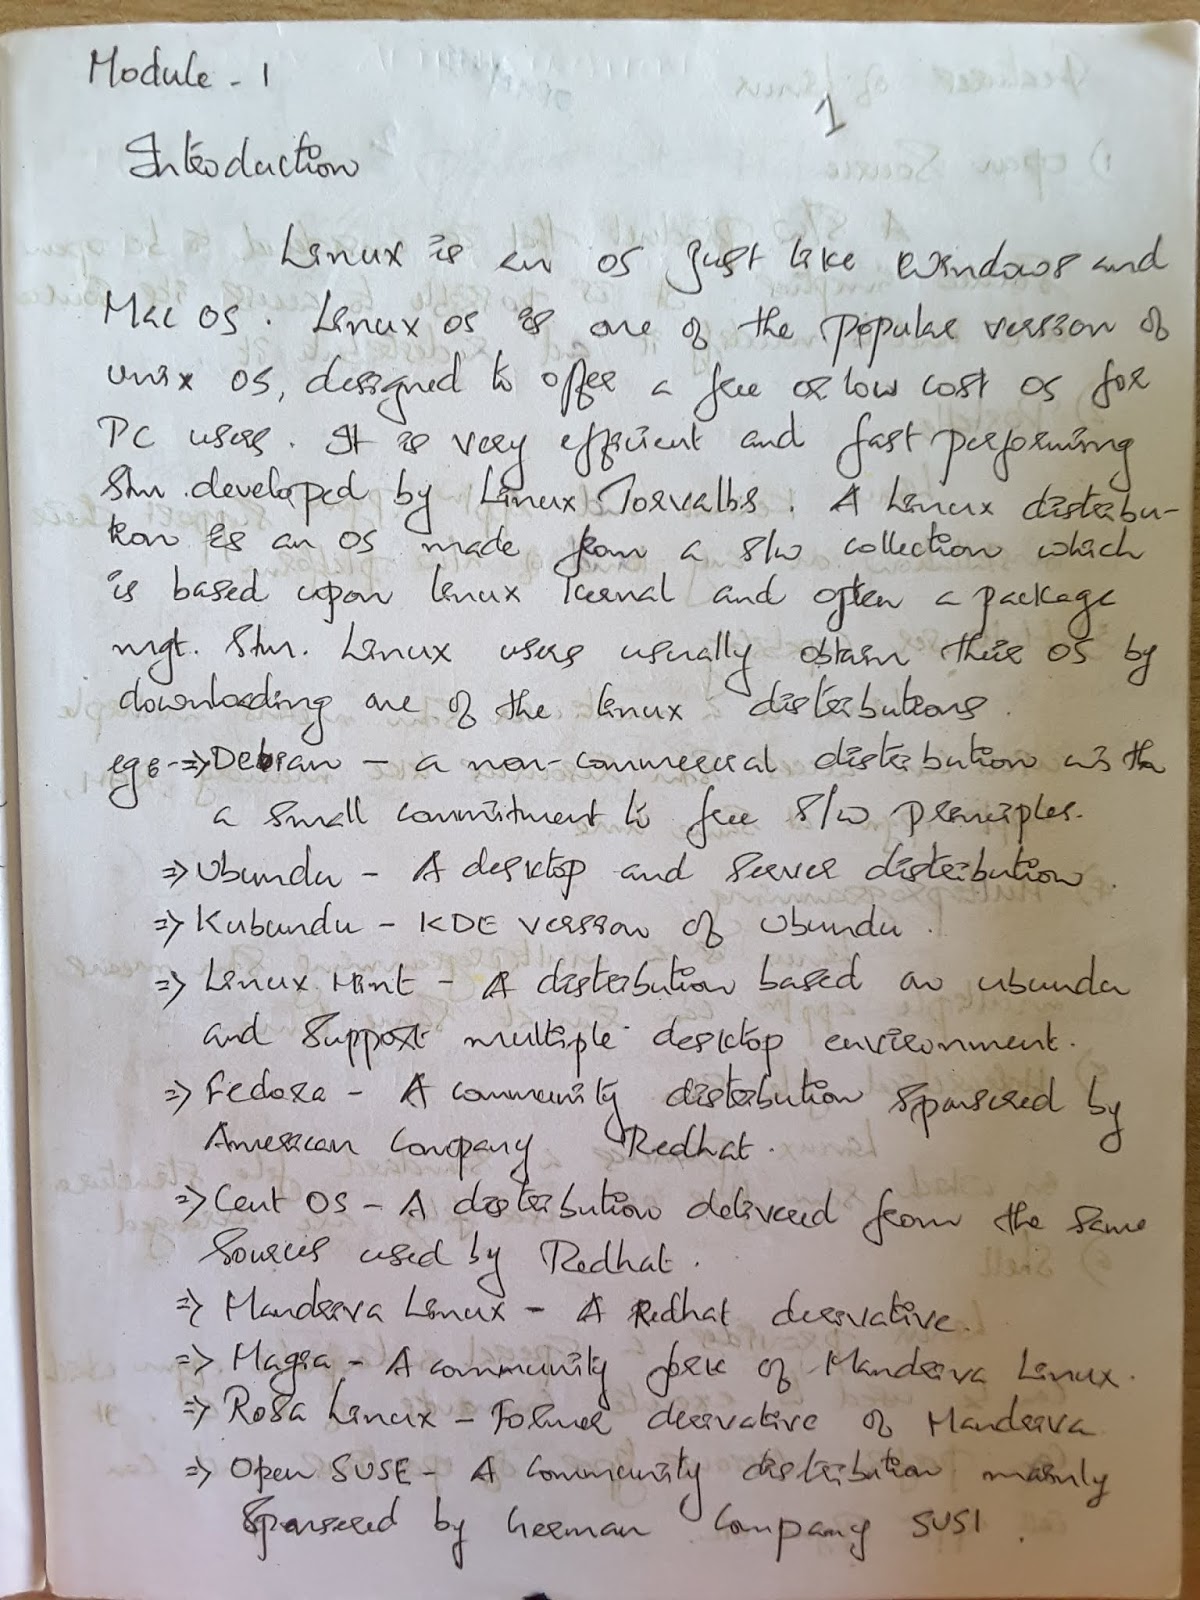 Module - 1
1
Introduction
Linux is an OS Just like Windows and
Mac OS. Linux OS is one of the popular version of
Unix OS, designed to offer a free or low cost OS for
PC users. It is very efficient and fast performing
Stm. developed by Linux Torvalbs. A Linux distribu-
tion is an OS made from a S/w collection which
is based upon linux kernal and often a package
mgt. Stm. Linux users usually obtain their OS by
downloading one of the linux distributions.
eg:- => Debian - a non-commercial distribution with
a small commitment to free S/w principles.
=> Ubundu - A desktop and Server distribution.
=> Kubundu - KDE version of Ubundu.
=> Linux Mint - A distribution based on ubundu
and Support multiple desktop environment.
=> Fedora - A community distribution Sponsered by
American Company Redhat.
=> Cent OS - A distribution delivered from the same
Sources used by Redhat.
=> Mandriva Linux - A Redhat derivative.
=> Magia - A community fork of Mandriva Linux.
=> Rosa Linux - Former derivative of Mandriva
=> Open SUSE - A Community distribution mainly
Sponsered by German Company SUSI.